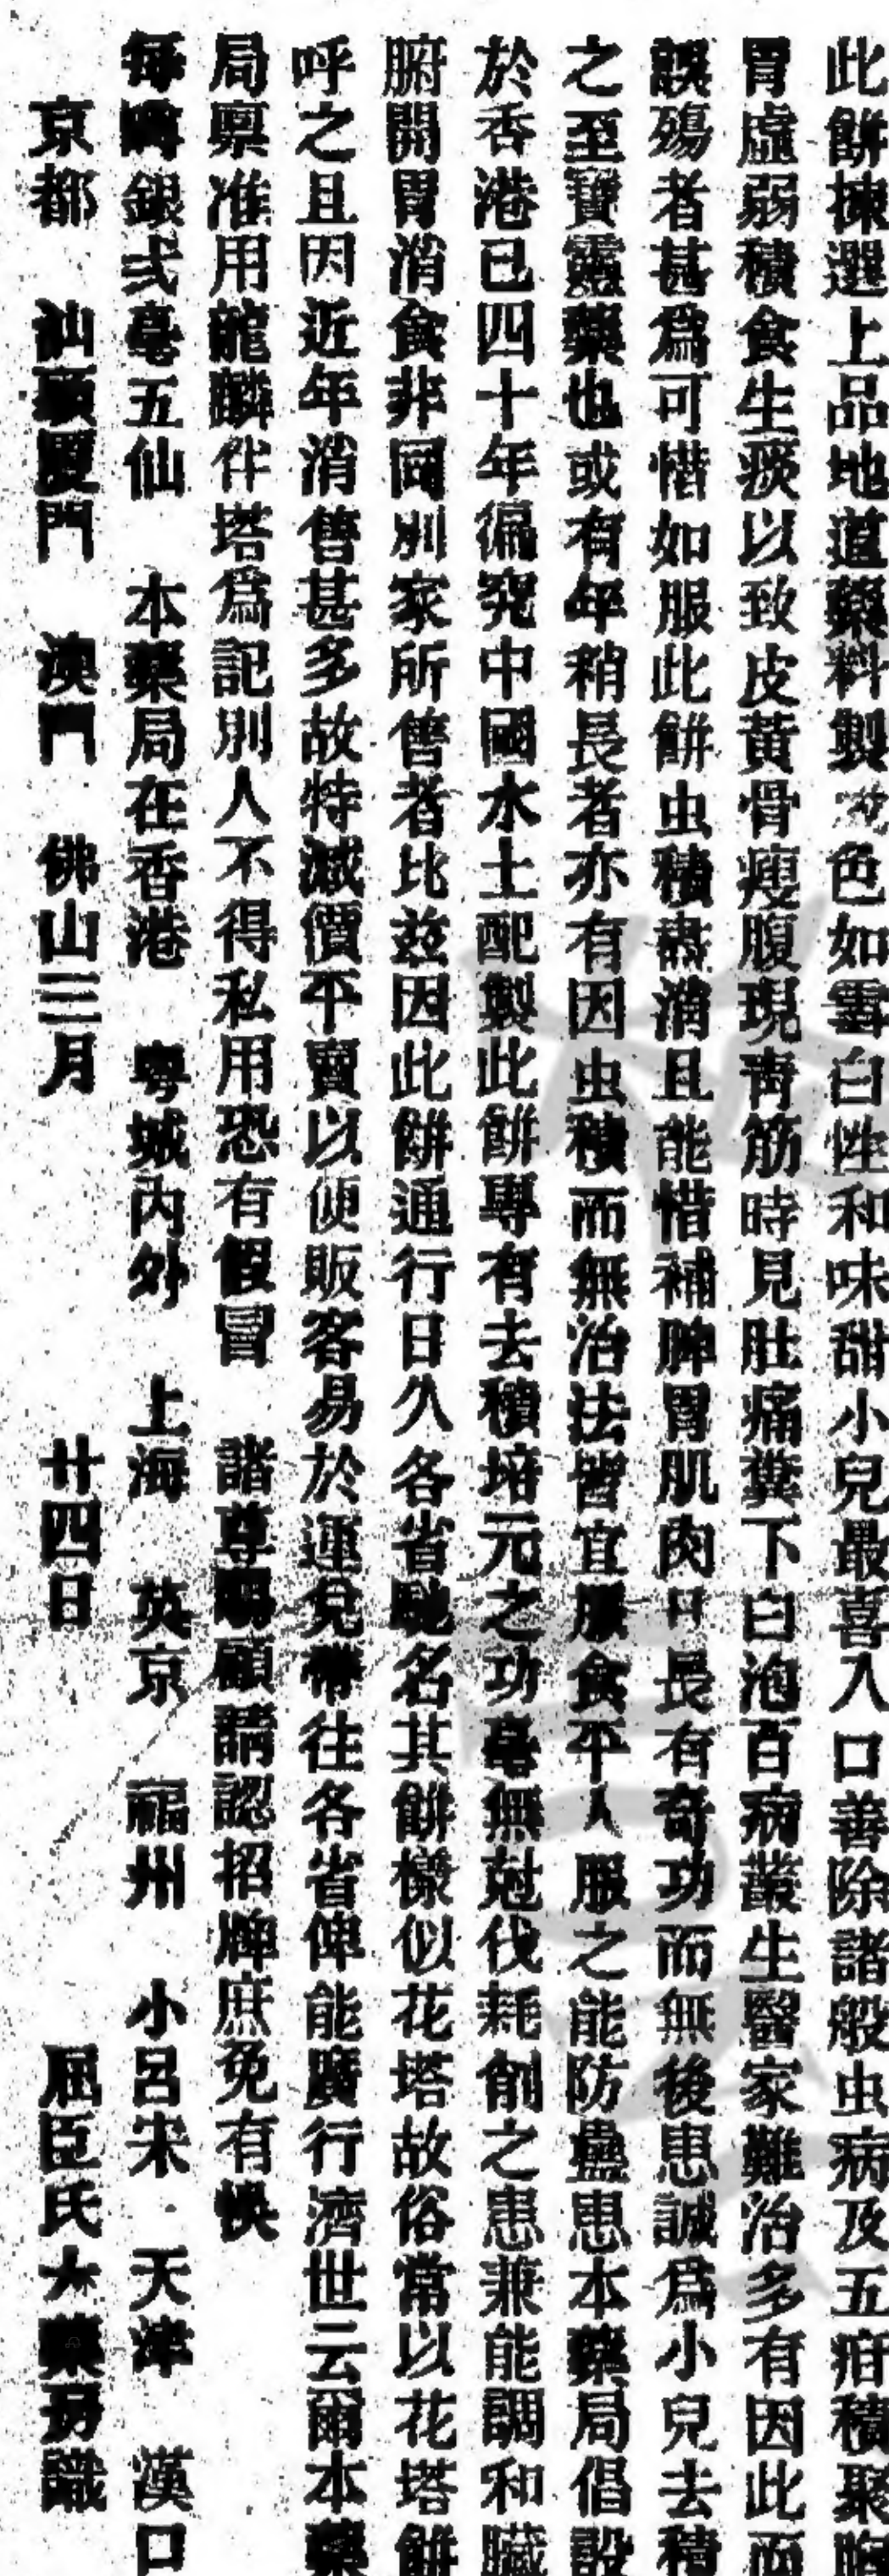 此餅揀選上品地道藥料製成色如雪白性和味甜小兒最喜入口善除諸般虫病及五疳積聚胸
胃虛弱積食生痰以致皮黃骨瘦腹現青筋時見肚痛糞下白泡百病叢生醫家難治多有因此而
誤殤者甚爲可惜如服此餅虫積盡消且能惜補脾胃肌肉日長有奇功而無後患誠爲小兒去積
之至寶靈藥也或有年稍長者亦有因虫積而無治法皆宜服食平人服之能防蠱患本藥局倡設
於香港已四十年徧究中國水土配製此餅專有去積培元之功毫無尅伐耗削之患兼能調和臟
腑開胃消食非同別家所售者比玆因此餅通行日久各省馳名其餅樣似花塔故俗常以花塔餅
呼之且因近年消售甚多故特減價平賣以便販客易於運兌帶往各省俾能廣行濟世云爾本藥
局禀准用龍麟伴塔爲記別人不得私用恐有假冒 諸尊賜顧請認招牌庶免有悞
每樽銀弍毫五仙 本藥局在香港 粵城內外 上海 英京 福州 小呂宋 天津 漢口
京都 汕頭厦門 澳門 佛山三月 廿四日 屈臣氏大藥房識